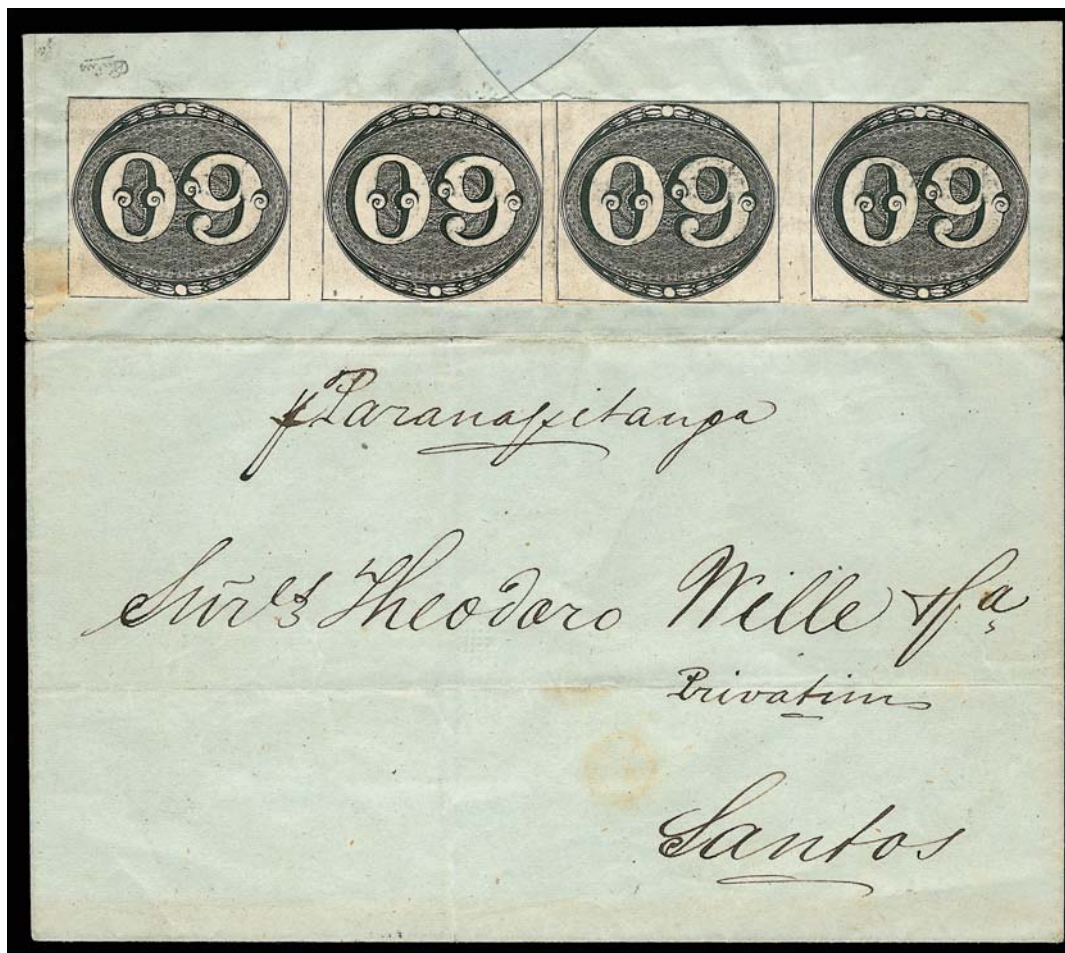 09 09 09 09
p Paranapitanga
Sñres Theodoro Wille & Ca
Privatim
Santos